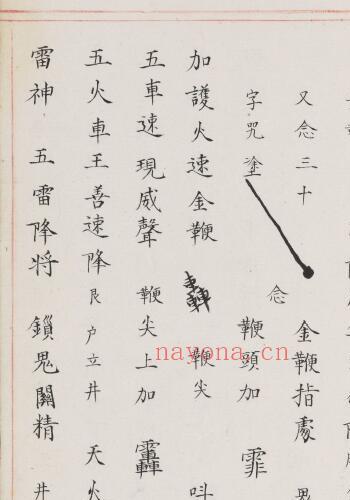 又念三十 金鞭指處
字咒塗 念 鞭頭加
加護火速金鞭 轟 鞭尖
五車速現威聲 鞭尖上加
五火車王善速降 艮户立井 天火
雷神 五雷降将 鎖鬼關精 井
nayona.cn